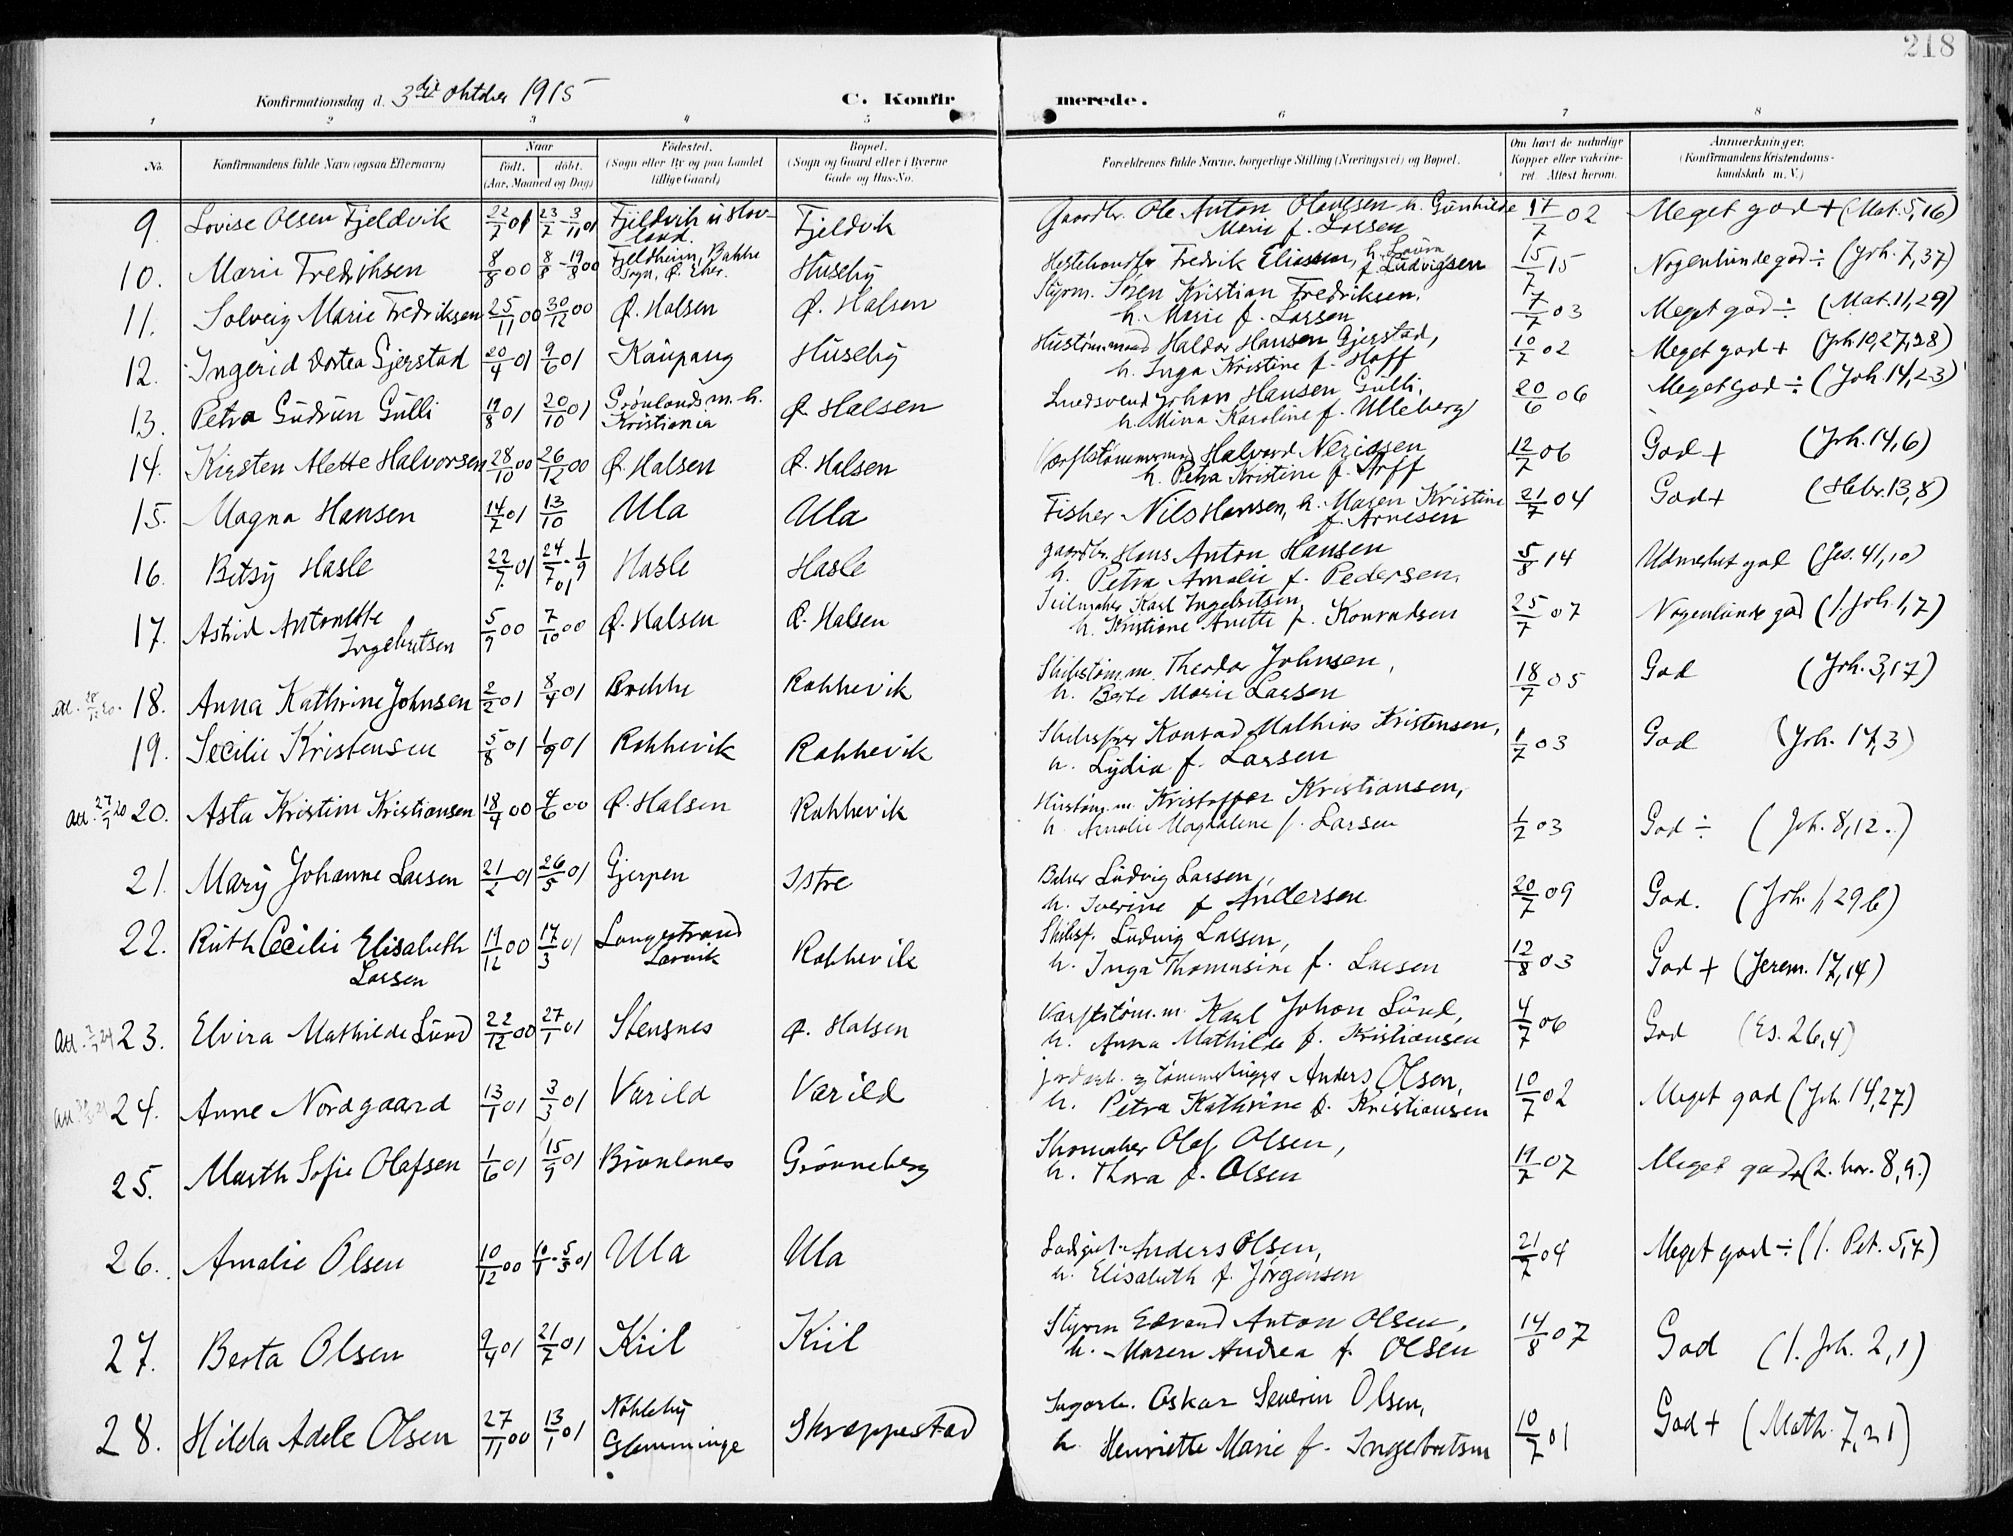 218
Konfirmationsdag d. 3die oktober 1915
C. Konfirmerede.
1 2 3 4 5 6 7 8
No. Konfirmandens fulde Navn (ogsaa Efternavn) Naar født. døbt. (Aar, Maaned og Dag) Fødested. (Sogn eller By og paa Landet tillige Gaard) Bopæl. (Sogn og Gaard eller i Byerne Gade og Hus-No. Forældrenes fulde Navne, borgerlige Stilling (Næringsvei) og Bopæl. Om havt de naturlige Kopper eller vakcineret. Attest herom. Anmærkninger. (Konfirmandens Kristendomskundskab m. V.)
9. Lovise Olsen Fjeldvik 22/7 01 23/7 - 3/11 01 Fjeldvik i Fjeldvik Gaardbr. Ole Anton Olausen h. Gunhilde Marie f. Larsen 17/7 02 Meget god + (Mat. 5,16)
10. Marie Fredriksen 8/8 00 8/8 - 19/8 00 Fjeldheim, Bakke Sogn, Ø. Eker. Huseby Hestehandler Fredrik Eliassen, h. Laura f. Ludvigsen 15/7 15 Nogenlunde god ÷ (Joh. 7,37)
11. Solveig Marie Fredriksen 25/11 00 30/12 00 Ø. Halsen Ø. Halsen Styrm. Søren Kristian Fredriksen, h. Marie f. Larsen 7/7 03 Meget god ÷ (Mat. 11,29)
12. Ingerid Dortea Gjerstad 20/4 01 9/6 01 Kaupang Huseby Hustømmermand Haldor Hansen Gjerstad, h. Inga Kristine f. Hoff 10/7 02 Meget god + (Joh 10,27,28)
13. Petra Gudrun Gulli 19/8 01 20/10 01 Grønlands m.h. Kristiania Ø. Halsen Johan Hansen Gulli, h. Mina Karoline f. Ulleberg 20/6 06 Meget god ÷ (Joh. 14,23)
14. Kirsten Mette Halvorsen 28/10 00 26/12 00 Ø. Halsen Ø. Halsen Værftstømmermand Halvard h. Petra Kristine f. Arff 12/7 06 God + (Joh. 14,6)
15. Magna Hansen 14/7 01 13/10 Ula Ula Fisker Nils Hansen, h. Maren Kristine f. Arnesen 21/7 04 God + (Hebr. 13,8)
16. Betsy Hasle 22/7 01 24/7 - 1/9 01 Hasle Hasle Gaardbr. Hans Anton Hansen h. Petra Amalie f. Pedersen. 5/8 14 Udmerket god (Jes. 41,10)
17. Astrid Antonette Ingebritsen 5/9 00 7/10 00 Ø. Halsen Ø. Halsen Seilmaker Karl Ingebritsen, h. Kristiane Anette f. Konradsen 25/7 07 Nogenlunde god (1. Joh. 1,7)
18. Anna Kathrine Johnsen 2/2 01 8/4 01 Brekke Rakkevik Skibstøm.m. Theodor Johnsen, h. Berte Marie Larsen 18/7 05 God (Joh. 3,17)
19. Secilie Kristensen 5/8 01 1/9 01 Rakkevik Rakkevik Skibsfører Konrad Mathias Kristensen, h. Lydia f. Larsen 1/7 03 God (Joh. 17,3)
Att. 27/7 20 20. Asta Kristine Kristiansen 18/4 00 4/6 00 Ø. Halsen Rakkevik Hustøm.m. Kristoffer Kristiansen, h. Amalie Magdalene f. Larsen 1/7 03 God ÷ (Joh. 8,12.)
21. Mary Johanne Larsen 21/2 01 26/5 01 Gjerpen Istre Baker Ludvig Larsen, h. Iverine f Andersen 20/7 09 God. (Joh. 1, 29 b)
22. Ruth Cecilie Elisabeth Larsen 19/12 00 17/3 01 Langestrand Larvik Rakkevik Skibsf. Ludvig Larsen, h. Inga Thomasine f. Larsen 12/8 03 God + (Jerem. 17,14)
Att. 23. Elvira Mathilde Lund 22/12 00 27/1 01 Stensnes Ø. Halsen Værftstøm.m. Karl Johan Lund, h. Anna Mathilde f. Kristiansen 4/7 06 God (Es. 26,4)
24. Anne Nordgaard 13/1 01 3/3 01 Varild Varild Jordarb. og tømmerhugger Anders Olsen, h. Petra Kathrine f. Kristiansen 10/7 02 Meget god (Joh. 14,27)
25. Marth Sofie Olafsen 1/6 01 15/9 01 Brunlanes Grønneberg Skomaker Olaf Olsen, h. Thora f. Olsen 19/7 07 Meget god + (2. kor. 8,9.)
26. Amalie Olsen 10/12 00 10/1 - 5/5 01 Ula Ula Anders Olsen, h. Elisabeth f. Jørgensen 21/7 04 Meget god ÷ (1. Pet. 5,7)
27. Berta Olsen 9/4 01 21/7 01 Kiil Kiil Styrm Edvard Anton Olsen, h. Maren Andrea f. Olsen 14/8 07 God (1. Joh. 2,1)
28. Hilda Adele Olsen 27/11 00 13/1 01 Nøkleby Glemminge Skræppestad Sagarb. Oskar Severin Olsen, h. Henriette Marie f. Ingebretsen 10/7 01 God + (Math. 7,21)